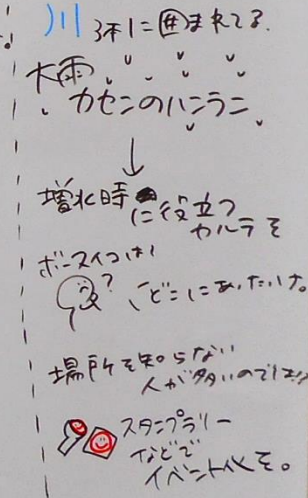 川に囲まれてる。
大雨
カセンのハンラン
↓
増水時に役立つ
カルテを
どこにあったいけ。
場所を知らない
人が多いのでは
スタンプラリー
などで
イベント化を。